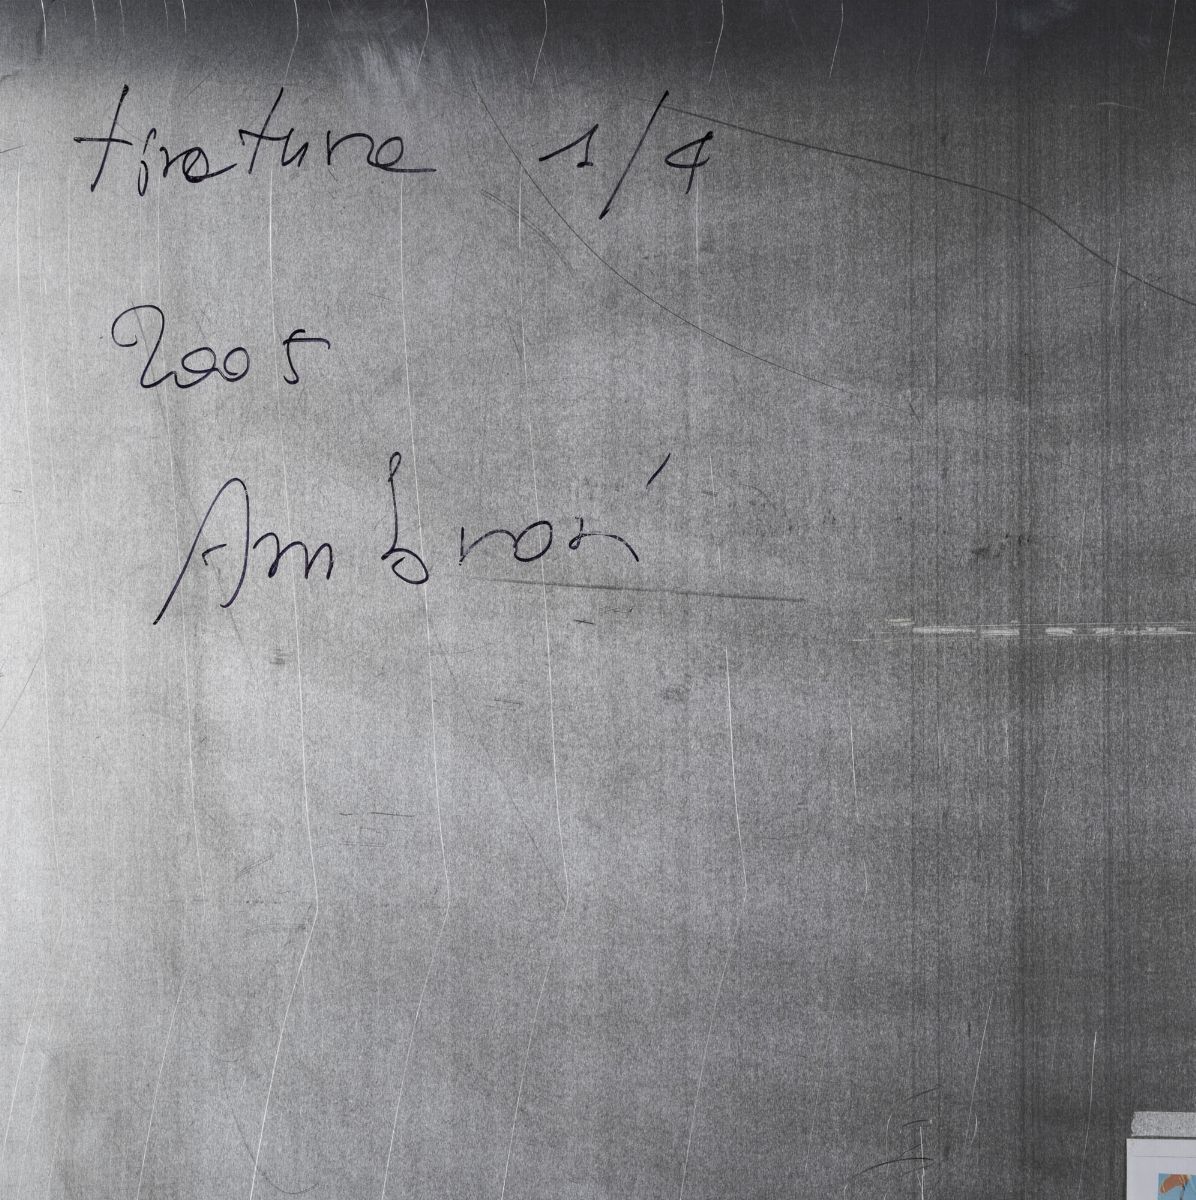 tiratura 1/4
2005